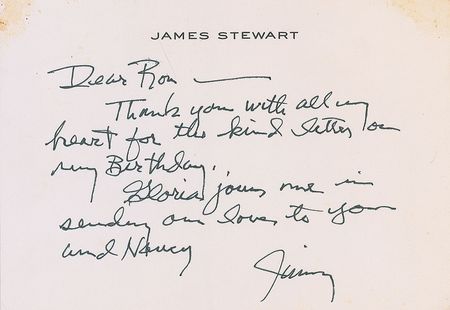 JAMES STEWART
Dear Ron —
Thank you with all my
heart for the kind letter on
my Birthday.
Gloria joins me in
sending our love to you
and Nancy
Jimmy